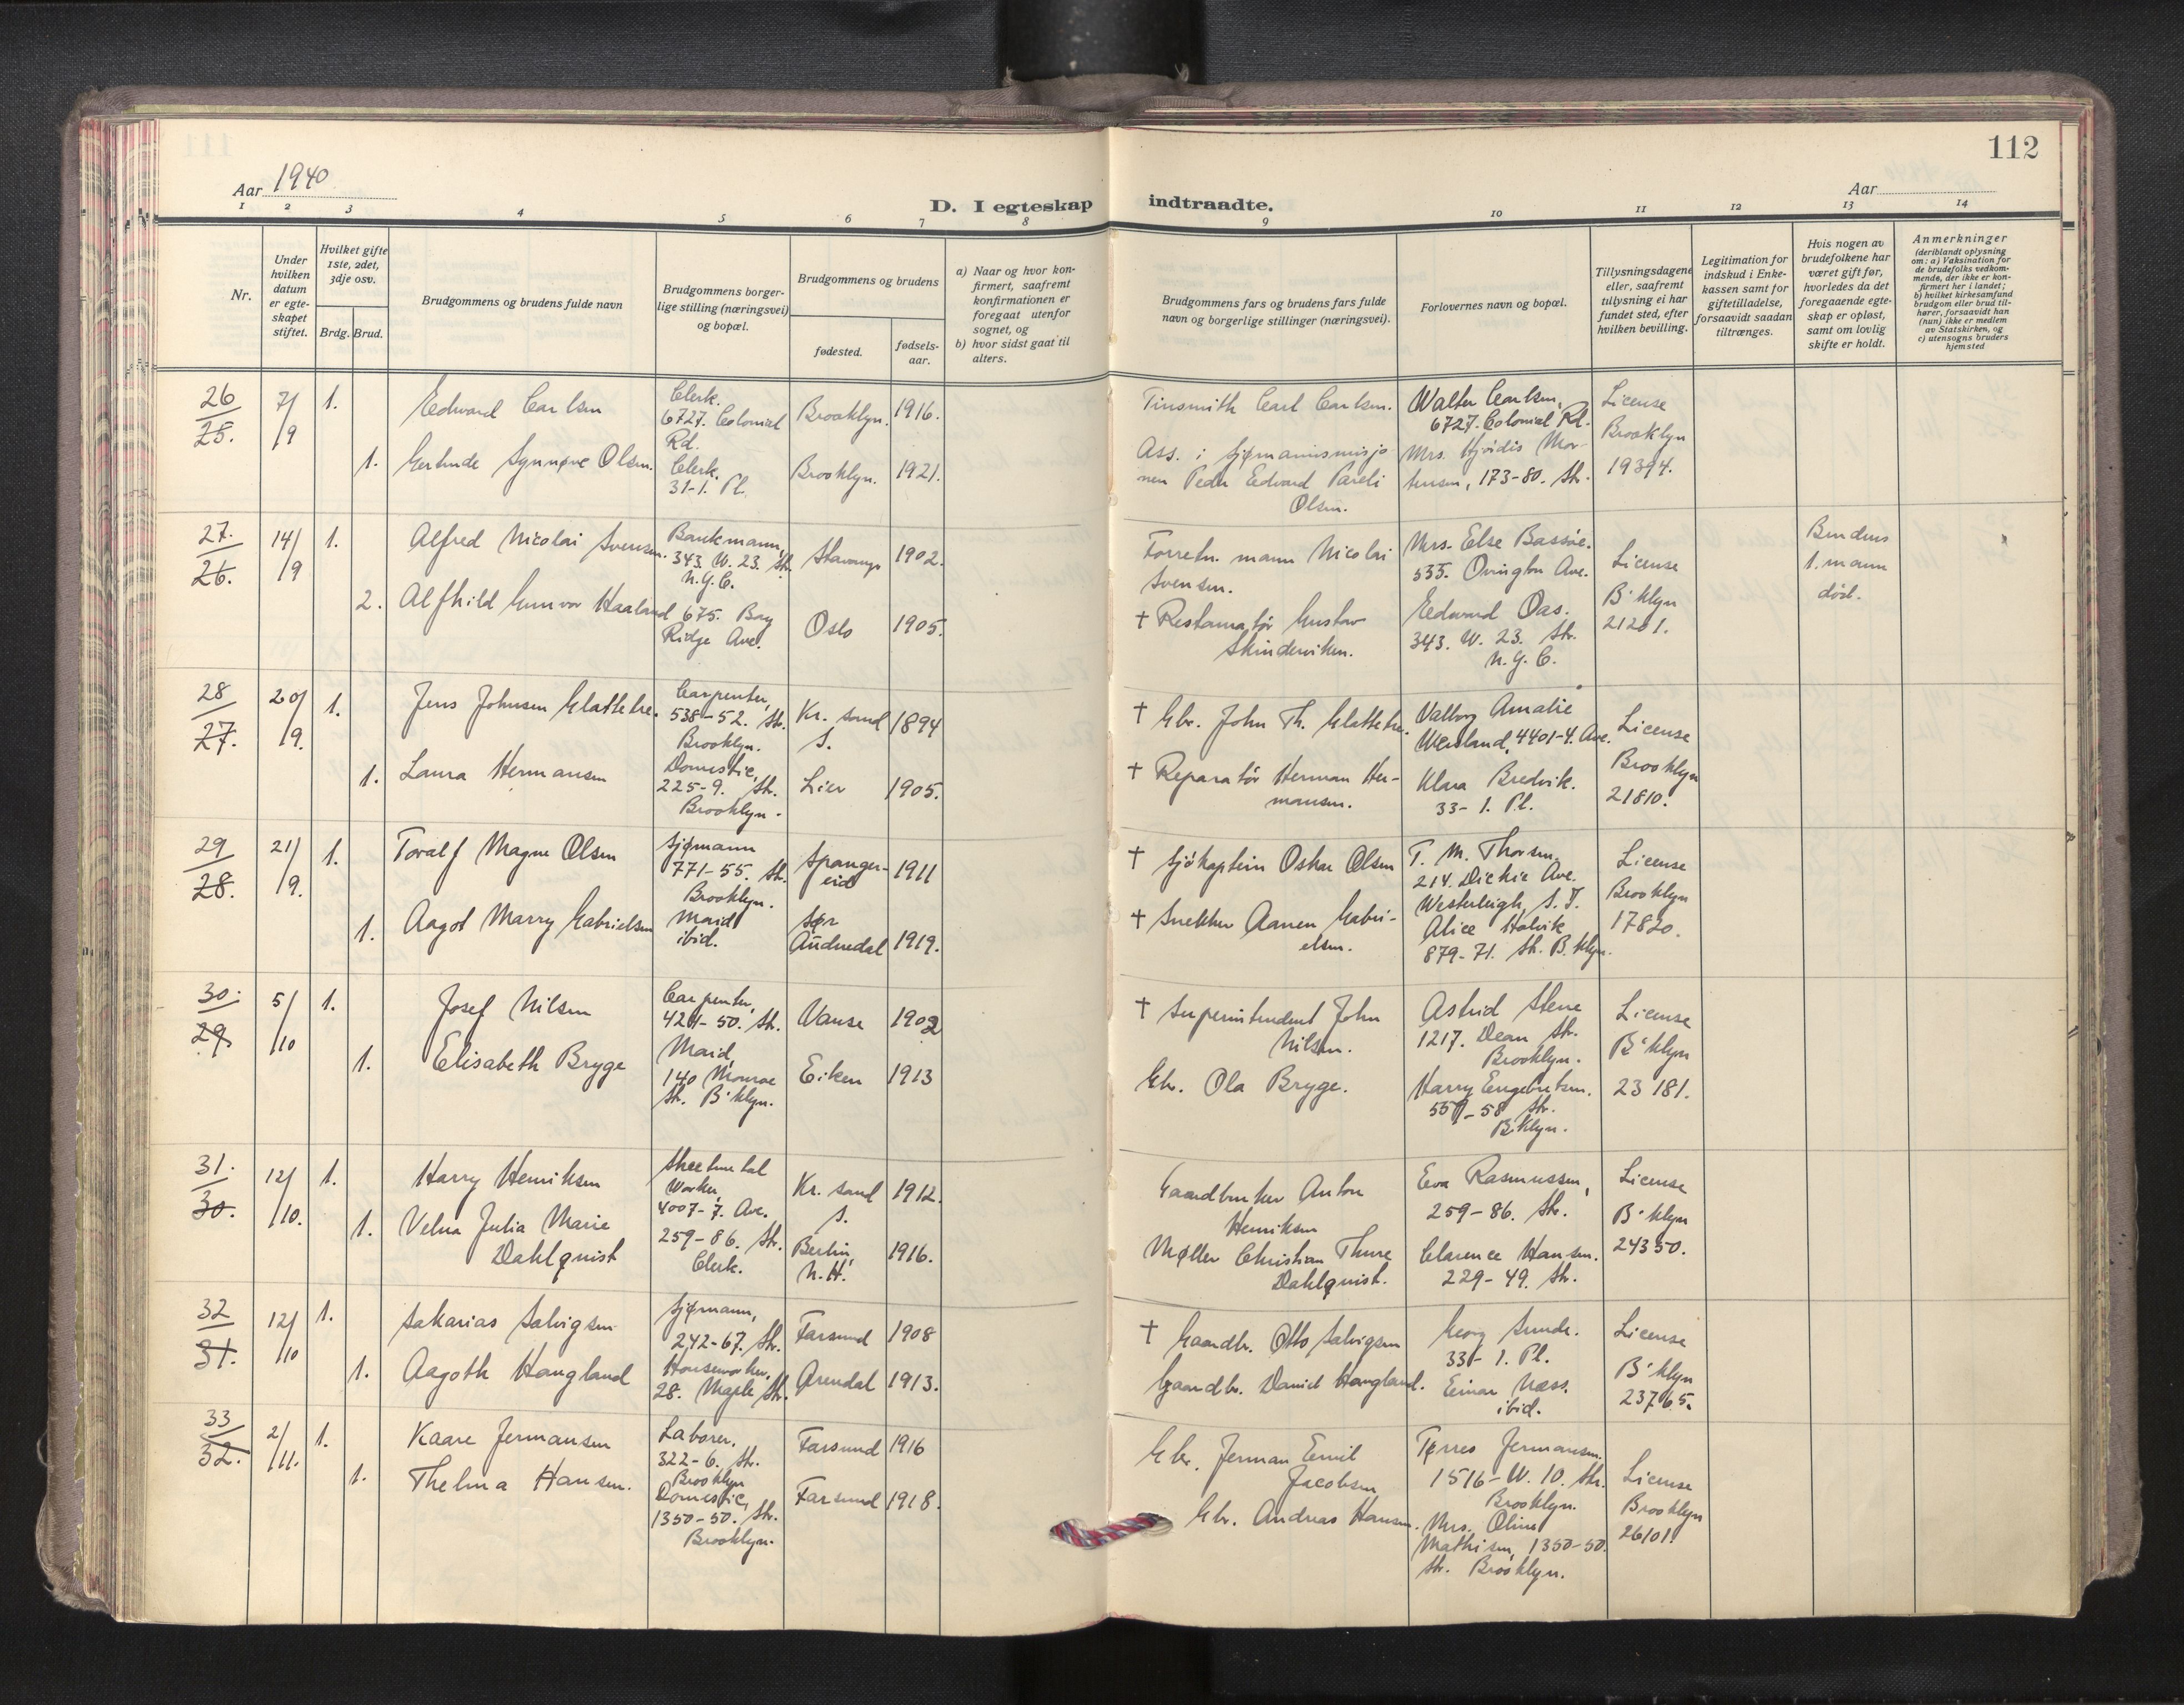 112
Aar 1940
Aar
D. I egteskap indtraadte.
1 2 3 4 5 6 7 8 9 10 11 12 13 14
Nr.
Under hvilken datum er egte-skapet stiftet.
Hvilket gifte 1ste, 2det, 3dje osv.
Brdg. Brud.
Brudgommens og brudens fulde navn
Brudgommens borger-lige stilling (næringsvei) og bopæl.
Brudgommens og brudens
fødested.
fødsels-aar.
a) Naar og hvor kon-firmert, saafremt konfirmationen er foregaat utenfor sognet, og
b) hvor sidst gaat til alters.
Brudgommens fars og brudens fars fulde navn og borgerlige stillinger (næringsvei).
Forlovernes navn og bopæl.
Tillysningsdagene eller, saafremt tillysning ei har fundet sted, efter hvilken bevilling.
Legitimation for indskud i Enke-kassen samt for giftetilladelse, forsaavidt saadan tiltrænges.
Hvis nogen av brudefolkene har været gift før, hvorledes da det foregaaende egte-skap er opløst, samt om lovlig skifte er holdt.
Anmerkninger
(deriblandt oplysning om: a) Vaksination for de brudefolks vedkom-mende, der ikke er kon-firmert her i landet; b) hvilket kirkesamfund brudgom eller brud til-hører, forsaavidt han (hun) ikke er medlem av Statskirken, og c) utensogns bruders hjemsted
26
25.
7/9
1.
Edward Carlsen
Clerk.
6727. Colonial Rd.
Brooklyn.
1916.
Tinsmith Carl Carlsen.
Walter Carlsen,
6727. Colonial Rd.
License
Brooklyn
19394.
1.
Gertrude Synnøve Olsen.
Clerk
31-1. Pl.
Brooklyn.
1921.
Ass. i Sjømannsmisjo
nen Peder Edvard Pareli
Olsen.
Mrs. Hjördis Mor-
tensen, 173-80. Str.
27.
26.
14/9
1.
Alfred Nicolai Svensen.
Bankmann,
343. W. 23. Str.
N.Y.C.
Stavanger
1902.
Forretn. mann Nicolai
Svensen.
Mrs. Else Bassöe.
535. Ovington Ave.
License
B'klyn
21201.
Brudens
1. mann
död.
2.
Alfhild Gunvor Haaland
675. Bay
Ridge Ave.
Oslo
1905.
† Restauratör Gustav
Skinderviken.
Edward Oas.
343. W. 23. Str.
N.Y.C.
28
27.
20/9.
1.
Jens Johnsen Glattetre.
Carpenter,
538-52. Str.
Brooklyn.
Kr. sand
S.
1894
† Gbr. John Th. Glattetre.
Valborg Amalie
Werland, 4401-4. Ave.
License
Brooklyn
21810.
1.
Laura Hermansen
Domestic,
225-9. Str.
Brooklyn.
Lier
1905.
† Reparatör Herman Her-
mansen.
Klara Bredvik.
33-1. Pl.
29
28.
21/9.
1.
Toralf Magne Olsen
Sjømann
771-55. Str.
Brooklyn.
Spanger-
eid
1911
† Sjökaptein Oskar Olsen
T. M. Thorsen,
214. Dickie Ave.
Westerleigh, S.I.
License
Brooklyn
17820.
1.
Aagot Marry Gabrielsen
Maid
ibid.
Sør
Audnedal
1919.
† Snekker Aanen Gabri-
elsen.
Alice Halvik
879-71. Str. B.klyn.
30.
29.
5/10
1.
Josef Nilsen
Carpenter,
424-50. Str.
Vanse
1902
† Superintendent John
Nilsen.
Astrid Stene
1217. Dean Str.
Brooklyn.
License
B'klyn
23181.
1.
Elisabeth Bryge
Maid,
140 Monroe
Str. B'klyn.
Eiken
1913
Gbr. Ola Bryge.
Harry Engebretsen.
559-58 Str.
B.klyn.
31.
30.
12/10.
1.
Harry Henriksen
Sheetmetal
Worker,
4007-7. Ave.
Kr. sand
S.
1912.
Gaardbruker Anton
Henriksen
Eva Rasmussen,
259-86. Str.
License
B'klyn
24350.
1.
Velna Julia Marie
Dahlquist
259-86. Str.
Clerk.
Berlin,
N.H.
1916.
Møller Christian Thure
Dahlquist.
Clarence Hansen.
229-49. Str.
32
31.
12/10
1.
Sakarias Salvigsen
Sjømann,
242-67. Str.
Farsund
1908
† Gaardbr. Otto Salvigsen
Georg Sunde.
33-1. Pl.
License
B'klyn
23765.
1.
Aagoth Haugland
Houseworker,
28. Maple Str.
Arendal
1913.
Gaardbr. Daniel Haugland.
Einar Næss.
ibid.
33
32.
2/11.
1.
Kaare Jermansen
Laborer,
322-6. Str.
Brooklyn
Farsund
1916
Gbr. Jerman Emil
Jacobsen
Tørres Jermansen.
1516-W. 10. Str.
Brooklyn.
License
Brooklyn
26101.
1.
Thelma Hansen.
Domestic,
1350-50. Str.
Brooklyn.
Farsund
1918.
Gbr. Andreas Hansen.
Mrs. Oline
Mathisen, 1350-50.
Str. Brooklyn.